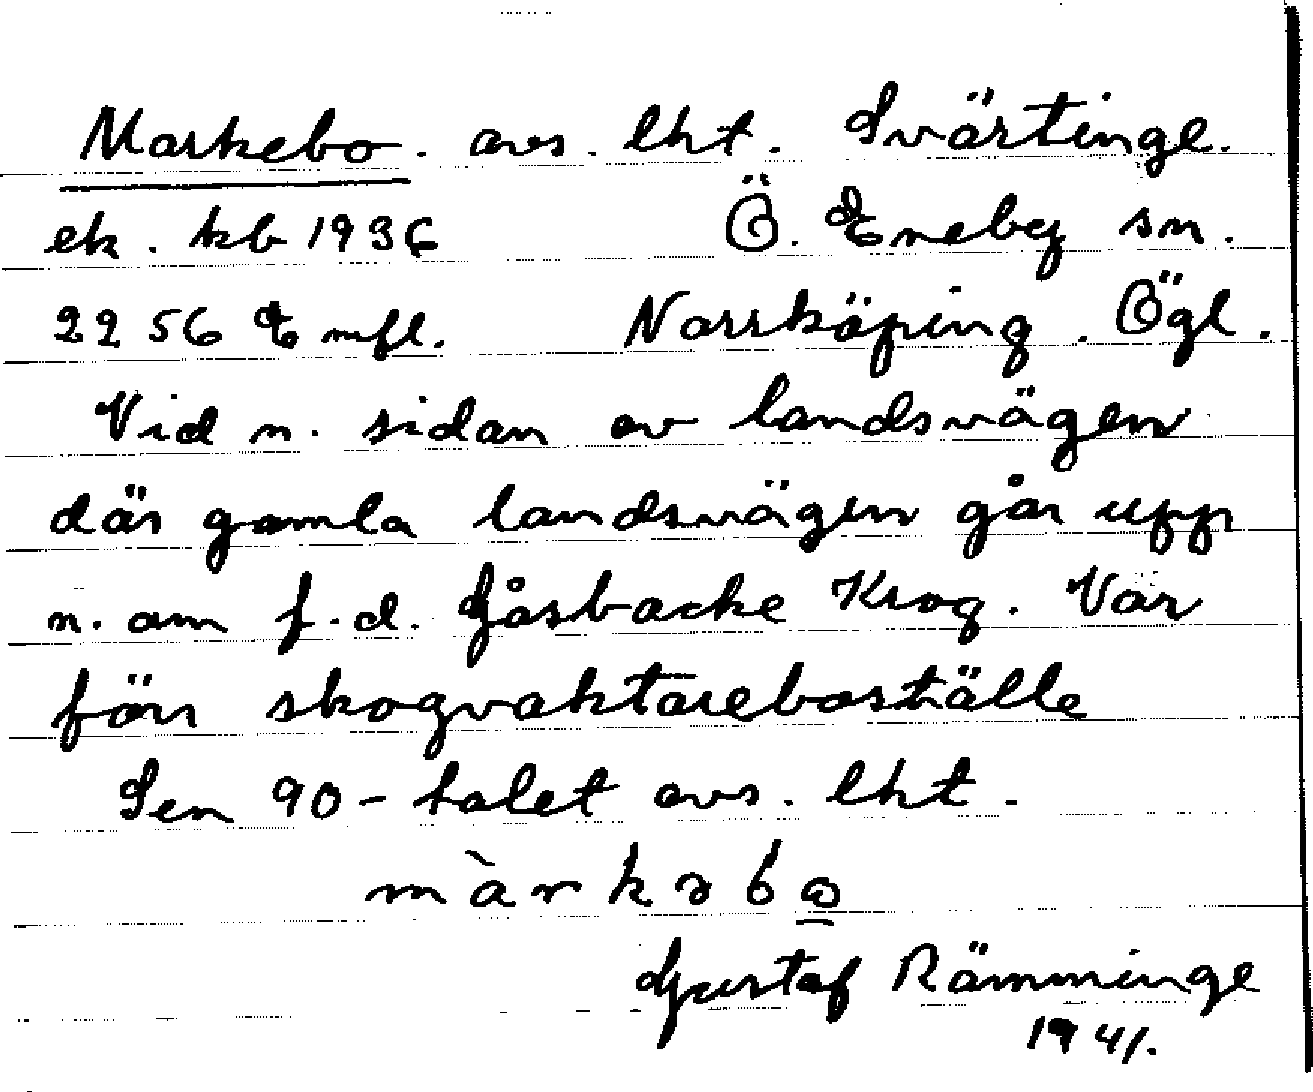 Markebo. avs. lht. Svärtinge.
ek. kb 1936 Ö. Eneby sn.
2256 E mfl. Norrköping. Ögl.
Vid n. sidan av landsvägen
där gamla landsvägen går upp
n. om f.d. Gåsbacke Krog. Var
förr skogvaktareboställe
Sen 90-talet avs. lht.
màrkəbꙍ
Gustaf Rämminge
1941.